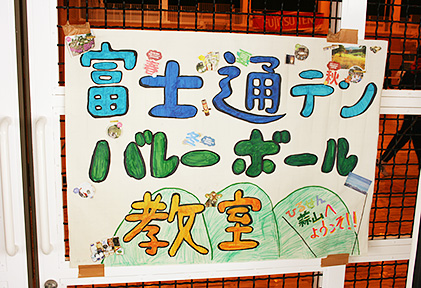 富士通テン
バレーボール
教室
蒜山へ
ようこそ!!
春
秋
冬
FUJITSU TEN